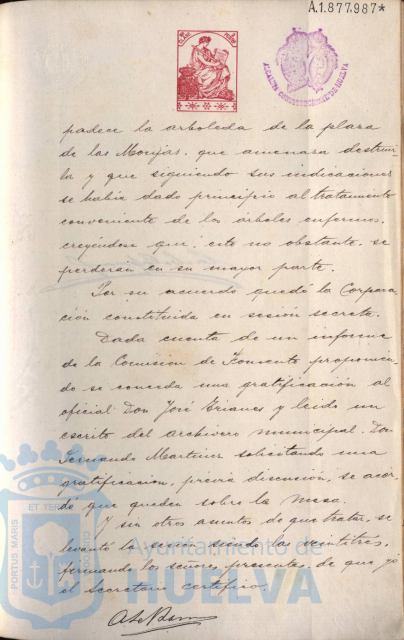 A.1.877.987*
ALCALDIA CONSTITUCIONAL DE HUELVA
padece la arboleda de la plaza
de las Monjas, que amenaza destruir
la y que siguiendo sus indicaciones
se habia dado principio al tratamiento
conveniente de los árboles enfermos,
creyéndose que, esto no obstante, se
perderán en su mayor parte.
Por su acuerdo quedó la Corpora
ción constituida en sesión secreta.
Dada cuenta de un informe
de la Comisión de Fomento proponien
do se conceda una gratificación al
oficial Don José Trianes y leido un
escrito del archivero municipal Don
Fernando Martinez solicitando una
gratificación, previa discusión, se acor
dó que queden sobre la mesa.
Y sin otros asuntos de que tratar, se
levantó la sesión siendo las veintitres,
firmando los señores presentes, de que yo
el Secretario certifico.
PORTUS MARIS
ET TERRÆ
Ayuntamiento de
HUELVA